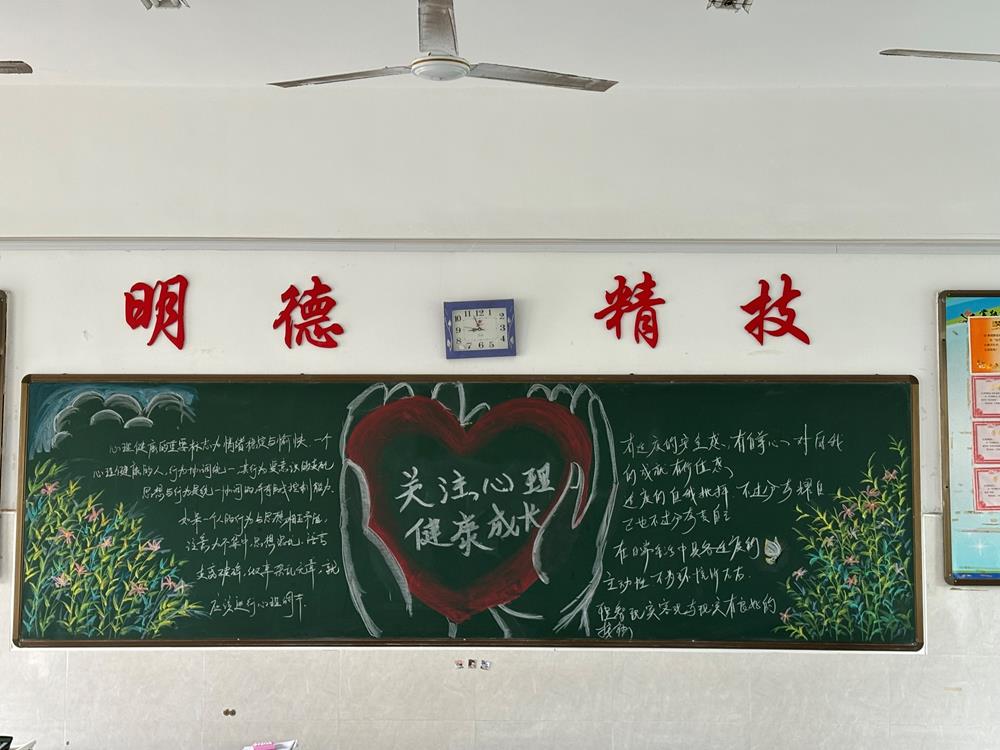 明德 精技
12
11
1
10
2
9
3
8
4
7
6
5
关注心理
健康成长
心理健康的重要标志为情绪稳定与愉快、一个
心理健康的人,行为协调统一,其行为受意识的支配
思想与行为是统一协调的,并有自我控制能力。
如果一个人的行为与思想相互矛盾,
注意力不集中,思想混乱,语言
支离破碎,做事杂乱无章,就
应该进行心理调节
有适度的安全感,有自尊心、对自我
的成就有价值感
适度的自我批评 不过分夸耀自
己也不过分苛责自己
在日常生活中具备适度的
主动性 不为环境所左右
理智 现实 客观 与现实有良好的
接触